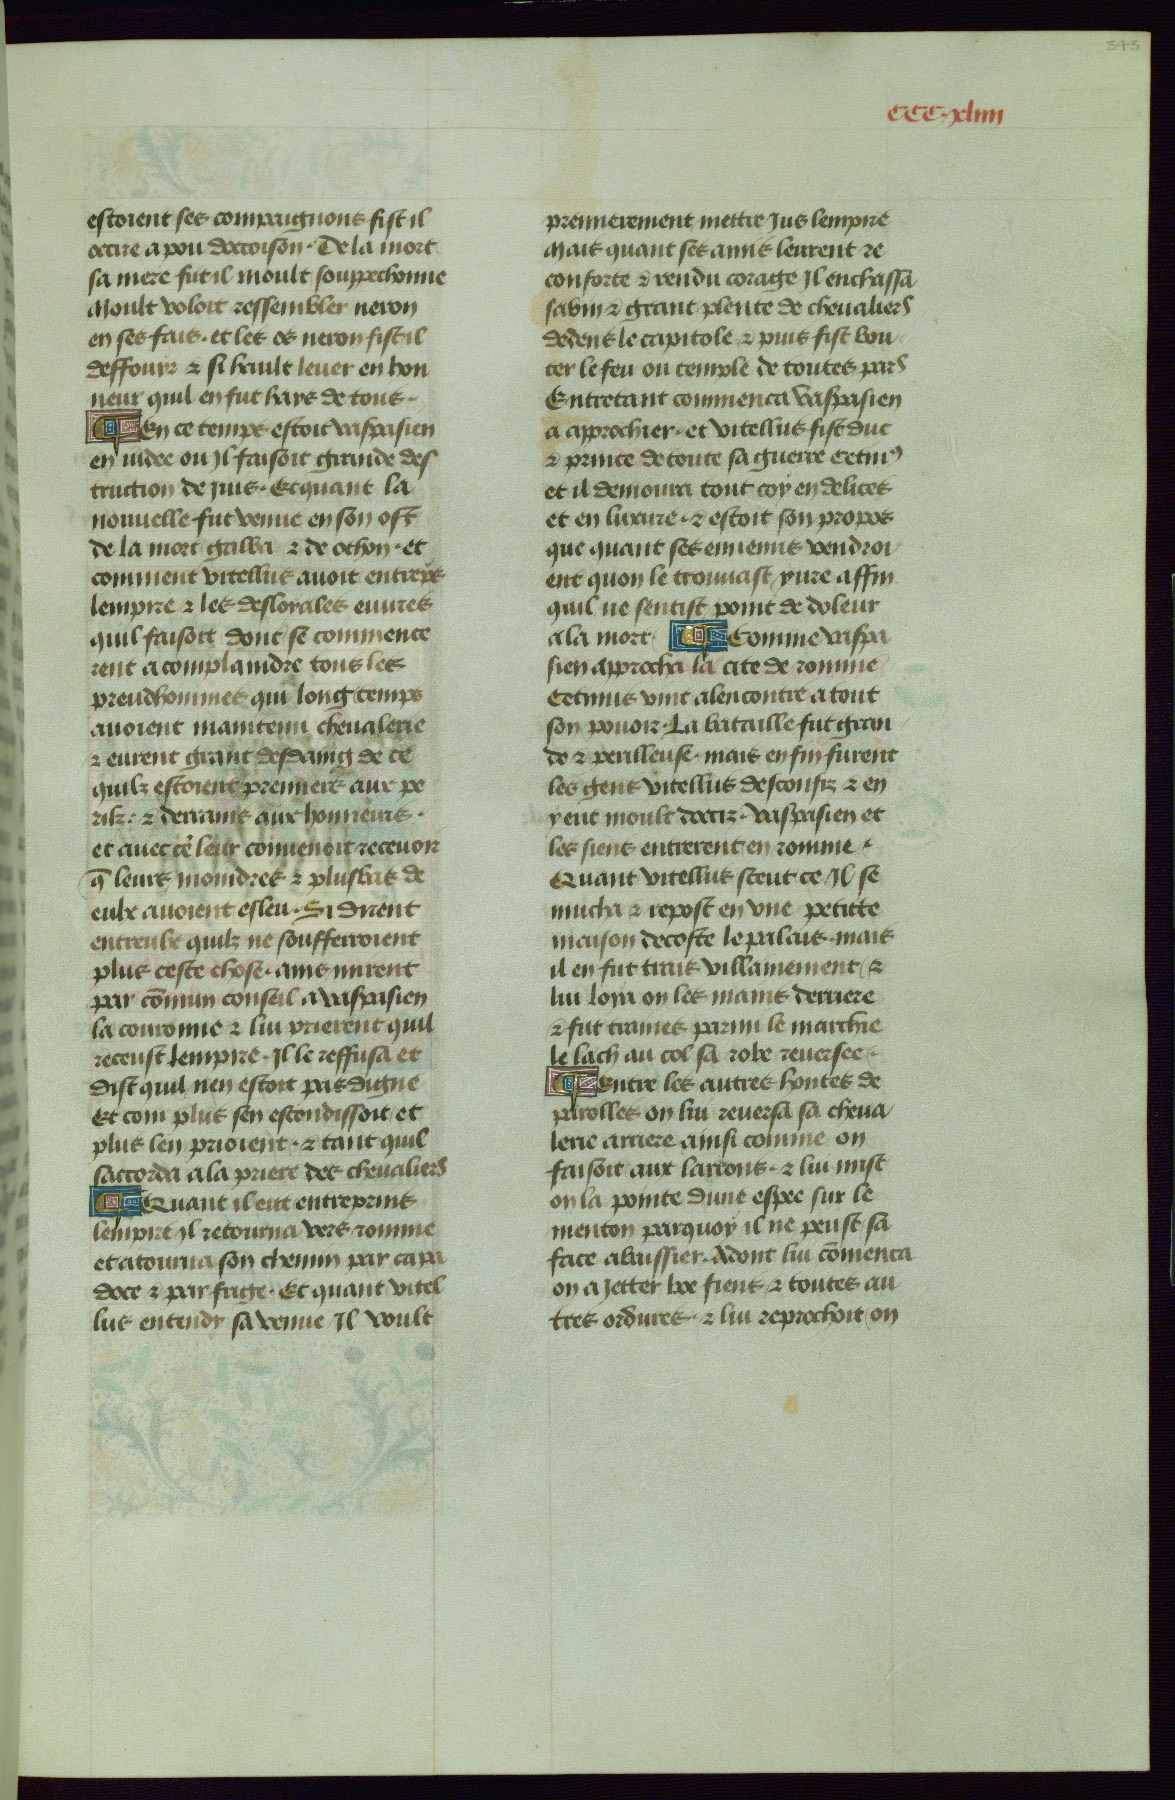 343
CCC.xliiii
estoient ses compaignons fist il
occire a pou doccoison. De la mort
sa mere fut il moult souppechonne
Moult voloit ressembler neron
en ses fais. et les os neron fist il
deffouyr ⁊ si hault lever en hon
neur quil en fut hays de tous.
¶ En ce temps estoit vaspasien
en iudee ou Jl faisoit grande des
truction de juis. Et quant la
nouvelle fut venue en son ost
de la mort galba ⁊ de othon. et
comment vitellus avoit entrepris
lempire ⁊ les desloiales euures
quil faisoit dont se commence
rent a complaindre tous les
preudhommes qui long temps
avoient maintenu chevalerie
⁊ eurent grant desdaing de ce
quilz estoient premiers aux pe
rilz. ⁊ derrains aux honneurs.
et avec ce leur convenoit recevoir
q̄ leurs moindres ⁊ plus bas de
eulx avoient esleu. Si dirent
entreulx quilz ne soufferroient
plus ceste chose. ains mirent
par cōmun conseil a vaspasien
la couronne ⁊ lui prierent quil
receust lempire. Jl le reffusa et
dist quil nen estoit pas digne
Et com plus sen escondissoit et
plus len prioient. ⁊ tant quil
saccorda a la priere des chevaliers
¶ Quant il eut entreprins
lempire Jl retourna vers romme
et atourna son chemin par capa
doce ⁊ par frige. Et quant vitel
lus entendy sa venue Jl voult
premierement mettre jus lempire
Mais quant ses amis leurent re
conforte ⁊ rendu corage Jl enchassa
sabin ⁊ grant plente de chevaliers
dedens le capitole ⁊ puis fist bou
ter le feu ou temple de toutes pars
Entretant commenca vaspasien
a approchier. et vitellus fist duc
⁊ prince de toute sa guerre Cetniꝰ
et il demoura tout coy en delices
et en luxure. ⁊ estoit son propos
que quant ses ennemis vendroi
ent quon le trouvast yure affin
quil ne sentist point de doleur
a la mort ¶ Comme vaspa
sien approcha la cite de romme
Cetinus vint alencontre a tout
son povoir. La bataille fut gran
de ⁊ perilleuse. mais en fin furent
les gens vitellus desconfiz ⁊ en
y eut moult docciz. vaspasien et
les siens entrerent en romme.
Quant vitellus sceut ce Jl se
mucha ⁊ repost en vne petitte
maison decoste le palais. mais
il en fut trais villainement ⁊
lui loya on les mains derriere
⁊ fut trainez parmi le marchie
le lach au col sa robe reversee.
¶ Entre les autres hontes de
parolles on lui reversa sa cheva
lerie arriere ainsi comme on
faisoit aux larrons. ⁊ lui mist
on la pointe dune espee sur le
menton parquoy il ne peust sa
face abaissier. Adont lui cōmenca
on a Jetter boe fiens ⁊ toutes au
tres ordures. ⁊ lui reprochoit on